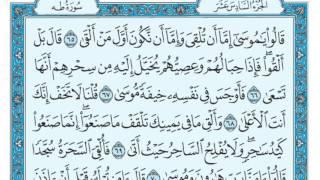 الجُزْءُ السَّادِسُ عَشَرَ سُورَةُ طه
قَالُوا۟ يَـٰمُوسَىٰٓ إِمَّآ أَن تُلْقِىَ وَإِمَّآ أَن نَّكُونَ أَوَّلَ مَنْ أَلْقَىٰ ٦٥ قَالَ بَلْ
أَلْقُوا۟ ۖ فَإِذَا حِبَالُهُمْ وَعِصِيُّهُمْ يُخَيَّلُ إِلَيْهِ مِن سِحْرِهِمْ أَنَّهَا
تَسْعَىٰ ٦٦ فَأَوْجَسَ فِى نَفْسِهِۦ خِيفَةً مُّوسَىٰ ٦٧ قُلْنَا لَا تَخَفْ إِنَّكَ
أَنتَ ٱلْأَعْلَىٰ ٦٨ وَأَلْقِ مَا فِى يَمِينِكَ تَلْقَفْ مَا صَنَعُوٓا۟ ۖ إِنَّمَا صَنَعُوا۟
كَيْدُ سَـٰحِرٍ ۖ وَلَا يُفْلِحُ ٱلسَّاحِرُ حَيْثُ أَتَىٰ ٦٩ فَأُلْقِىَ ٱلسَّحَرَةُ سُجَّدًا